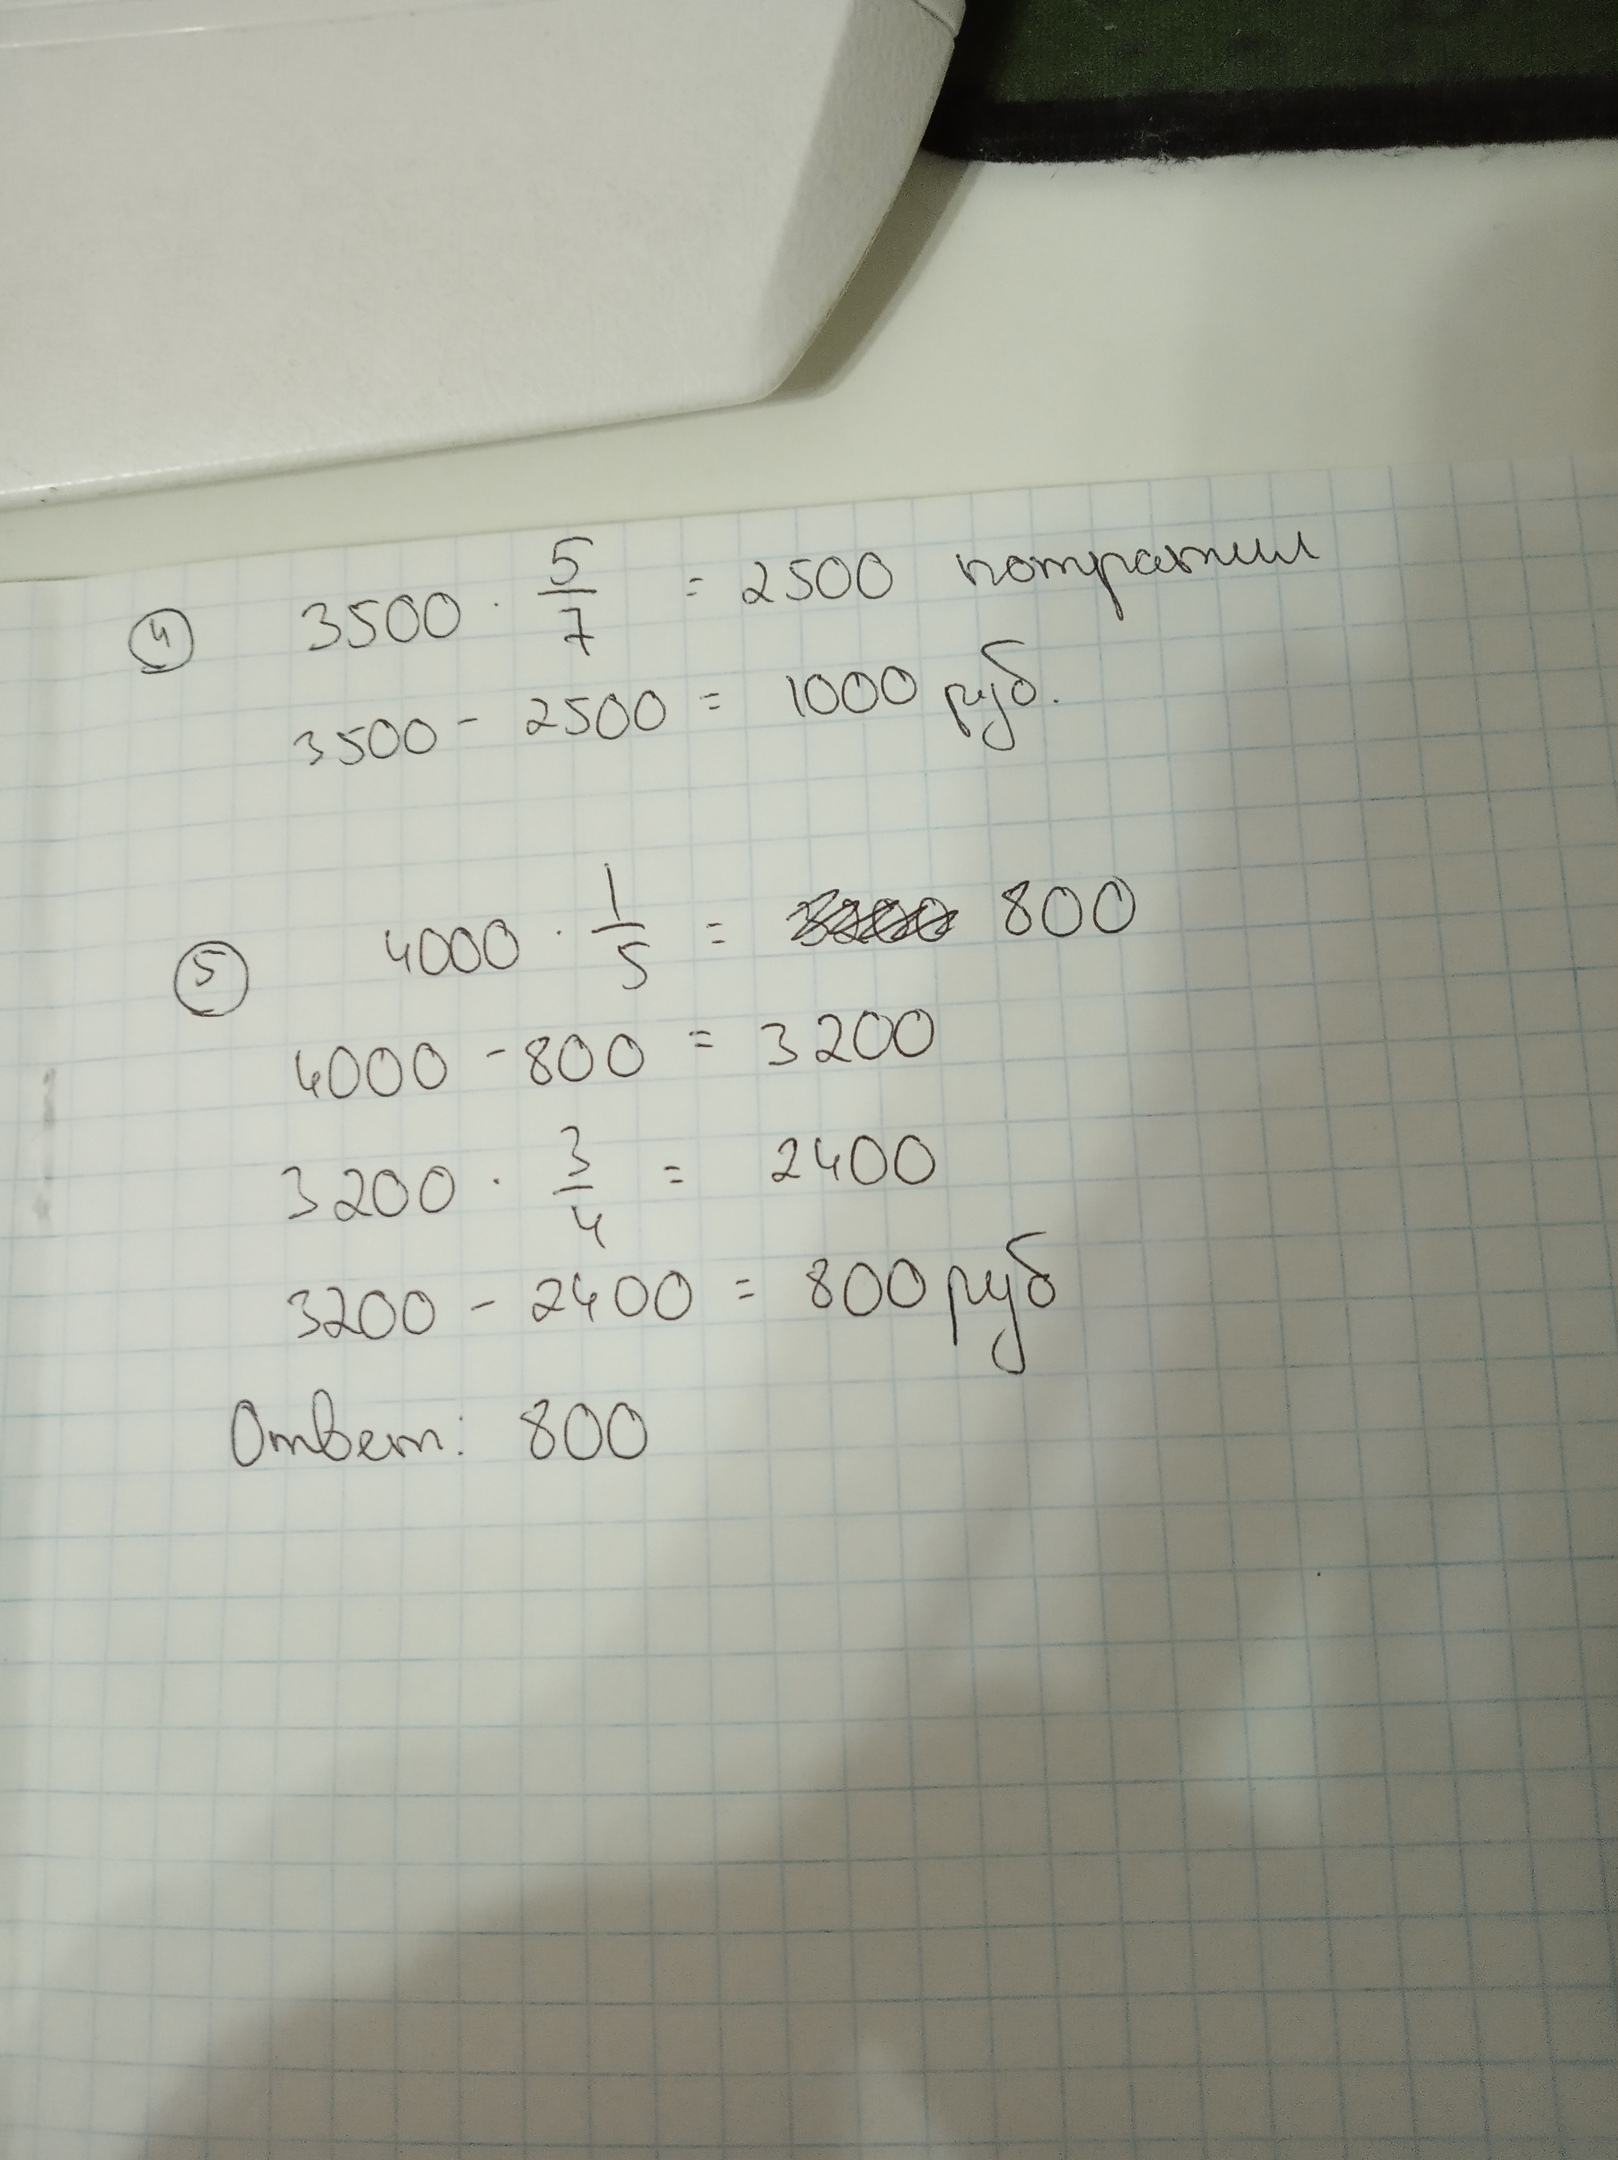 ④ 3500 · 5/7 = 2500 потратил
3500 - 2500 = 1000 руб.
⑤ 4000 · 1/5 = 800
4000 - 800 = 3200
3200 · 3/4 = 2400
3200 - 2400 = 800 руб
Ответ: 800